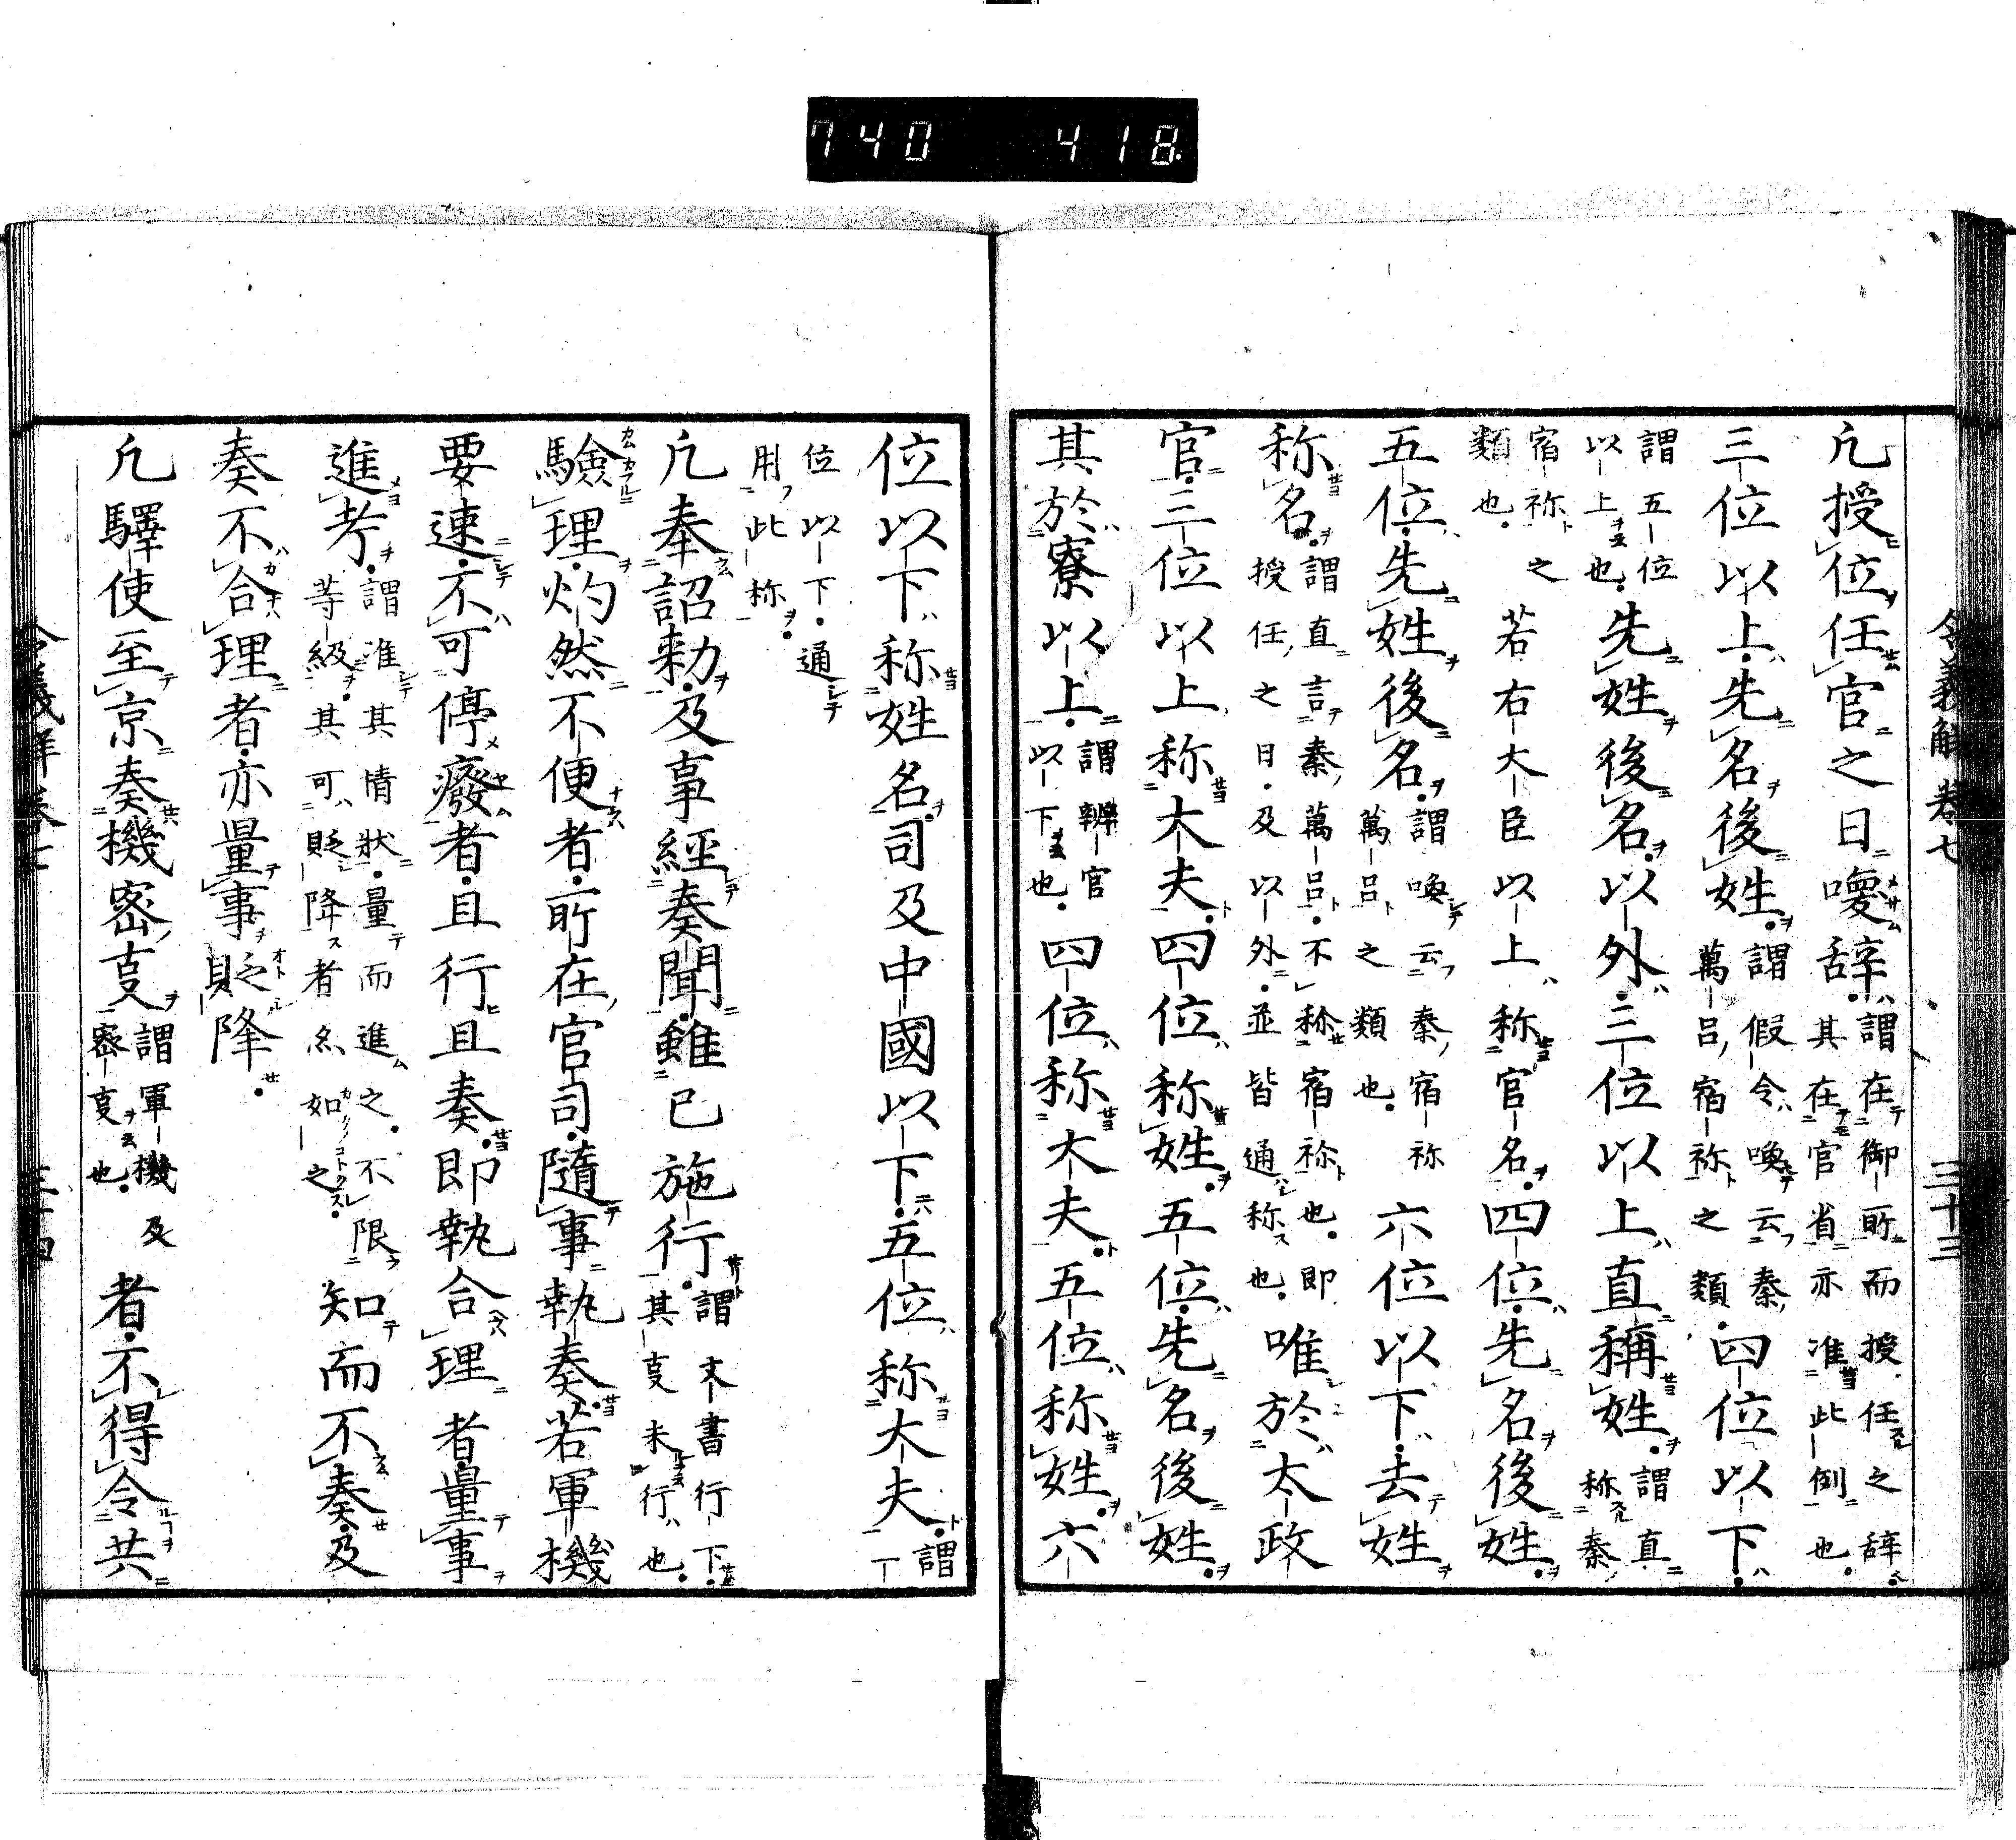 740 418
令義解 卷七 三十三
凢授位任官之日喚辞謂在御所而授任之辞其在官省亦准此例也
三位以上先名後姓謂假令喚云秦萬呂宿祢之類四位以下
謂五位以上也先姓後名以外三位以上直稱姓謂直称秦
宿祢之類也若右大臣以上称官名四位先名後姓
五位先姓後名謂喚云秦宿祢萬呂之類也六位以下去姓
称名謂直言秦萬呂不称宿祢也即授任之日及以外並皆通称也唯於太政
官三位以上称大夫四位称姓五位先名後姓
其於寮以上謂辨官以下也四位称大夫五位称姓六
位以下称姓名司及中國以下五位称大夫謂一
位以下通用此称
凢奉詔勅及事經奏聞雖已施行謂文書行下其事未行也
驗理灼然不便者所在官司隨事執奏若軍機
要速不可停癈者且行且奏即執合理者量事
進考謂准其情狀量而進之不限等級其可貶降者亦如之知而不奏及
奏不合理者亦量事貶降
凢驛使至京奏機密事謂軍機及密事也者不得令共
令義解 卷七 三十四